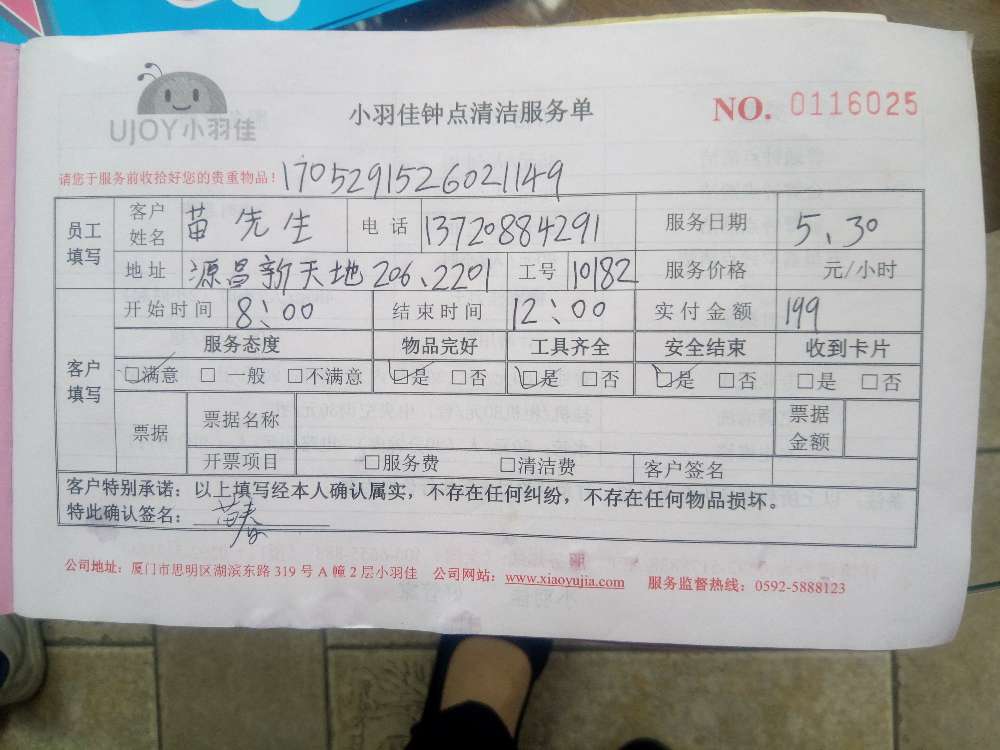 UJOY小羽佳
小羽佳钟点清洁服务单
NO. 0116025
请您于服务前收拾好您的贵重物品！
1705291526021149
员工填写 客户姓名 苗先生 电话 13720884291 服务日期 5、30
地址 源昌新天地206、2201 工号 10182 服务价格 元/小时
客户填写 开始时间 8：00 结束时间 12：00 实付金额 199
服务态度 物品完好 工具齐全 安全结束 收到卡片
☑满意 □一般 □不满意 ☑是 □否 ☑是 □否 ☑是 □否 □是 □否
票据 票据名称 票据金额
开票项目 □服务费 □清洁费 客户签名
客户特别承诺：以上填写经本人确认属实，不存在任何纠纷，不存在任何物品损坏。
特此确认签名：苗春
公司地址：厦门市思明区湖滨东路 319 号 A 幢 2 层小羽佳 公司网站：www.xiaoyujia.com 服务监督热线：0592-5888123